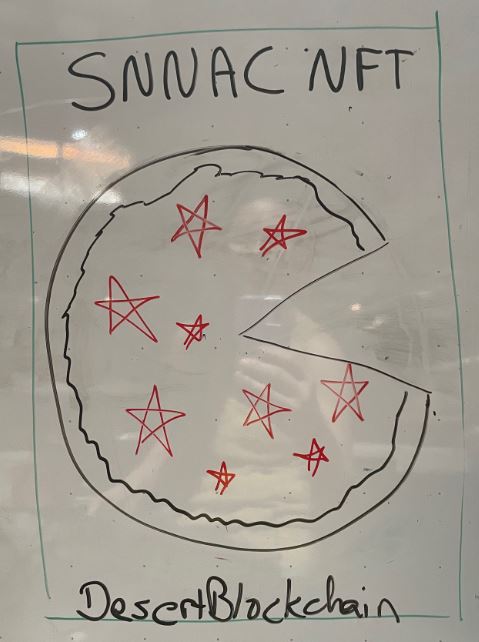 SNNAC NFT
DesertBlockchain